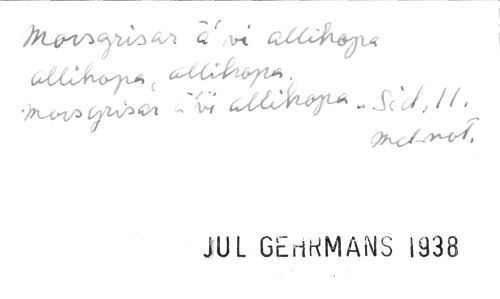 Morsgrisar ä' vi allihopa
allihopa, allihopa.
morsgrisar ä' vi allihopa. Sid. 11.
md not.
JUL GEHRMANS 1938